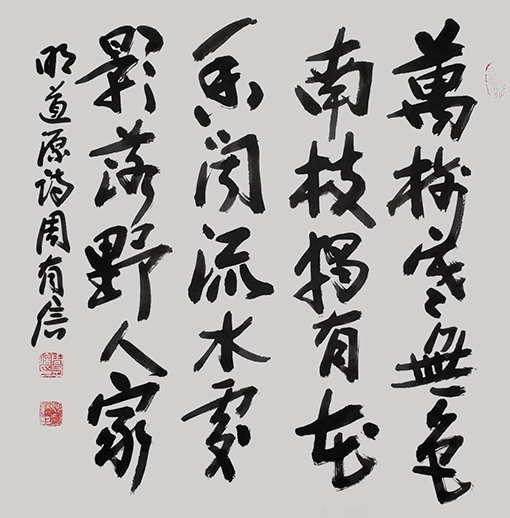 萬樹寒無色
南枝獨有花
香聞流水處
影落野人家
明道源詩周有信